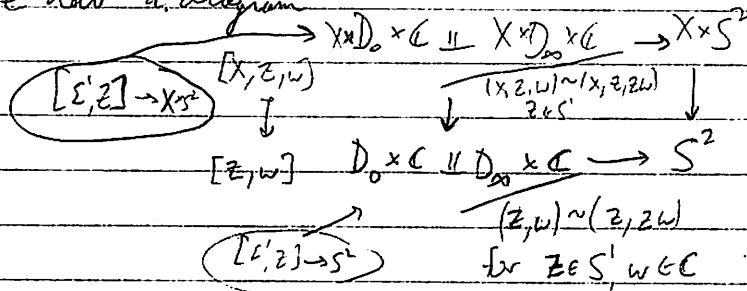 diagram
X×D₀×ℂ ⨿ X×D∞×ℂ → X×S²
[X,z,w]
(x,z,w)~(x,z,zw)
z∈S'
[ε',z] → X×S²
↓ ↓ ↓
[z,w] D₀×ℂ ⨿ D∞×ℂ → S²
(z,w)~(z,zw)
[ε',z] → S²
for z∈S', w∈ℂ